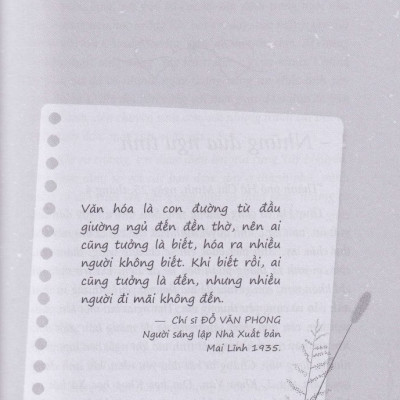 Văn hóa là con đường từ đầu
giường ngủ đến đền thờ, nên ai
cũng tưởng là biết, hóa ra nhiều
người không biết. Khi biết rồi, ai
cũng tưởng là đến, nhưng nhiều
người đi mãi không đến.
— Chí sĩ ĐỖ VĂN PHONG
Người sáng lập Nhà Xuất bản
Mai Lĩnh 1935.